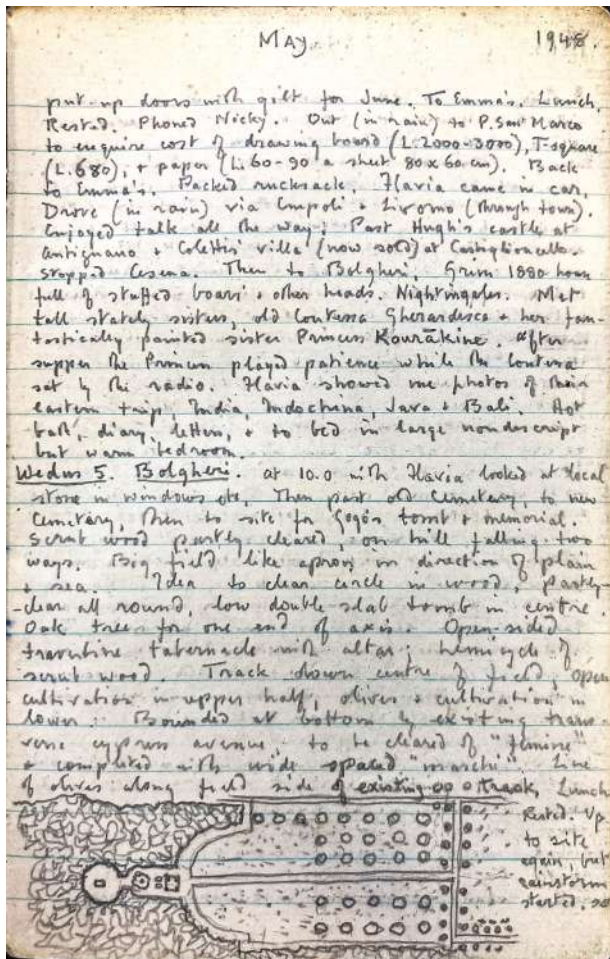 May 1948.
put up doors with gilt for June. To Emma's. Lunch.
Rested. Phoned Nicky. Out (in rain) to P. San Marco
to enquire cost of drawing board (L.2000-3000), T-square
(L.680), + paper (L.60-90 a sheet 80x60 cm). Back
to Emma's. Packed rucksack. Flavia came in car.
Drove (in rain) via Empoli + Livorno (through town).
Enjoyed talk all the way. Past Hugh's castle at
Antignano + Coletti's villa (now sold) at Castiglioncello.
Stopped Cecina. Then to Bolgheri. Grim 1880 house
full of stuffed boars + other heads. Nightingales. Met
tall stately sisters, old Contessa Gherardesca + her fan-
tastically painted sister Princess Kourākine. After
supper the Princess played patience while the Contessa
sat by the radio. Flavia showed me photos of their
eastern trip, India, Indochina, Java + Bali. Hot
bath, diary, letters, + to bed in large nondescript
but warm bedroom.
Wednes 5. Bolgheri. At 10.0 with Flavia looked at local
stone in windows etc. Then past old cemetery, to new
cemetery, then to site for Gogo's tomb + memorial.
Scrub wood partly cleared, on hill falling two
ways. Big field like apron in direction of plain
+ sea. Idea to clear circle in wood, partly
clear all round, low double slab tomb in centre.
Oak tree for one end of axis. Open-sided
travertine tabernacle with altar; hemicycle of
scrub wood. Track down centre of field, open
cultivation in upper half, olives + cultivation in
lower. Bounded at bottom by existing trans-
verse cypress avenue, to be cleared of "femine"
+ completed with wide spaced "maschi". Line
of olives along field side of existing track. Lunch
Rested. Up
to site
again, but
rainstorm
started, so